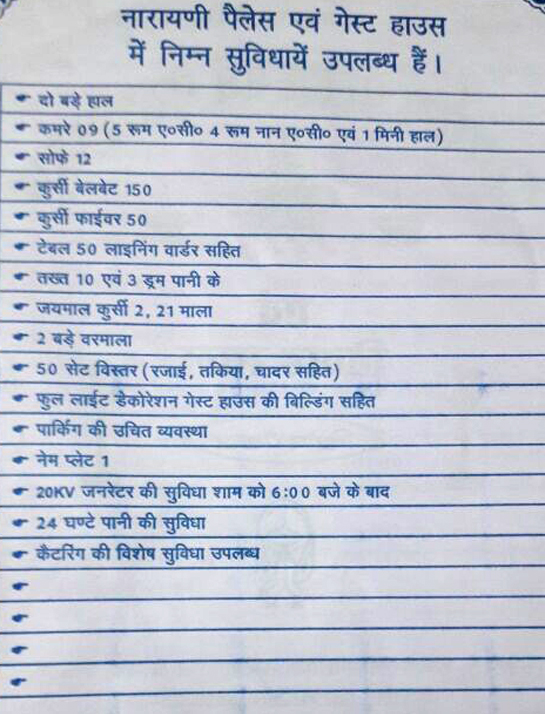 नारायणी पैलेस एवं गेस्ट हाउस
में निम्न सुविधायें उपलब्ध हैं।
दो बड़े हाल
कमरे 09 (5 रूम ए०सी० 4 रूम नान ए०सी० एवं 1 मिनी हाल)
सोफे 12
कुर्सी बेलबेट 150
कुर्सी फाईवर 50
टेबल 50 लाइनिंग वार्डर सहित
तख्त 10 एवं 3 ड्रम पानी के
जयमाल कुर्सी 2, 21 माला
2 बड़े वरमाला
50 सेट विस्तर (रजाई, तकिया, चादर सहित)
फुल लाईट डेकोरेशन गेस्ट हाउस की बिल्डिंग सहित
पार्किंग की उचित व्यवस्था
नेम प्लेट 1
20KV जनरेटर की सुविधा शाम को 6:00 बजे के बाद
24 घण्टे पानी की सुविधा
कैटरिंग की विशेष सुविधा उपलब्ध